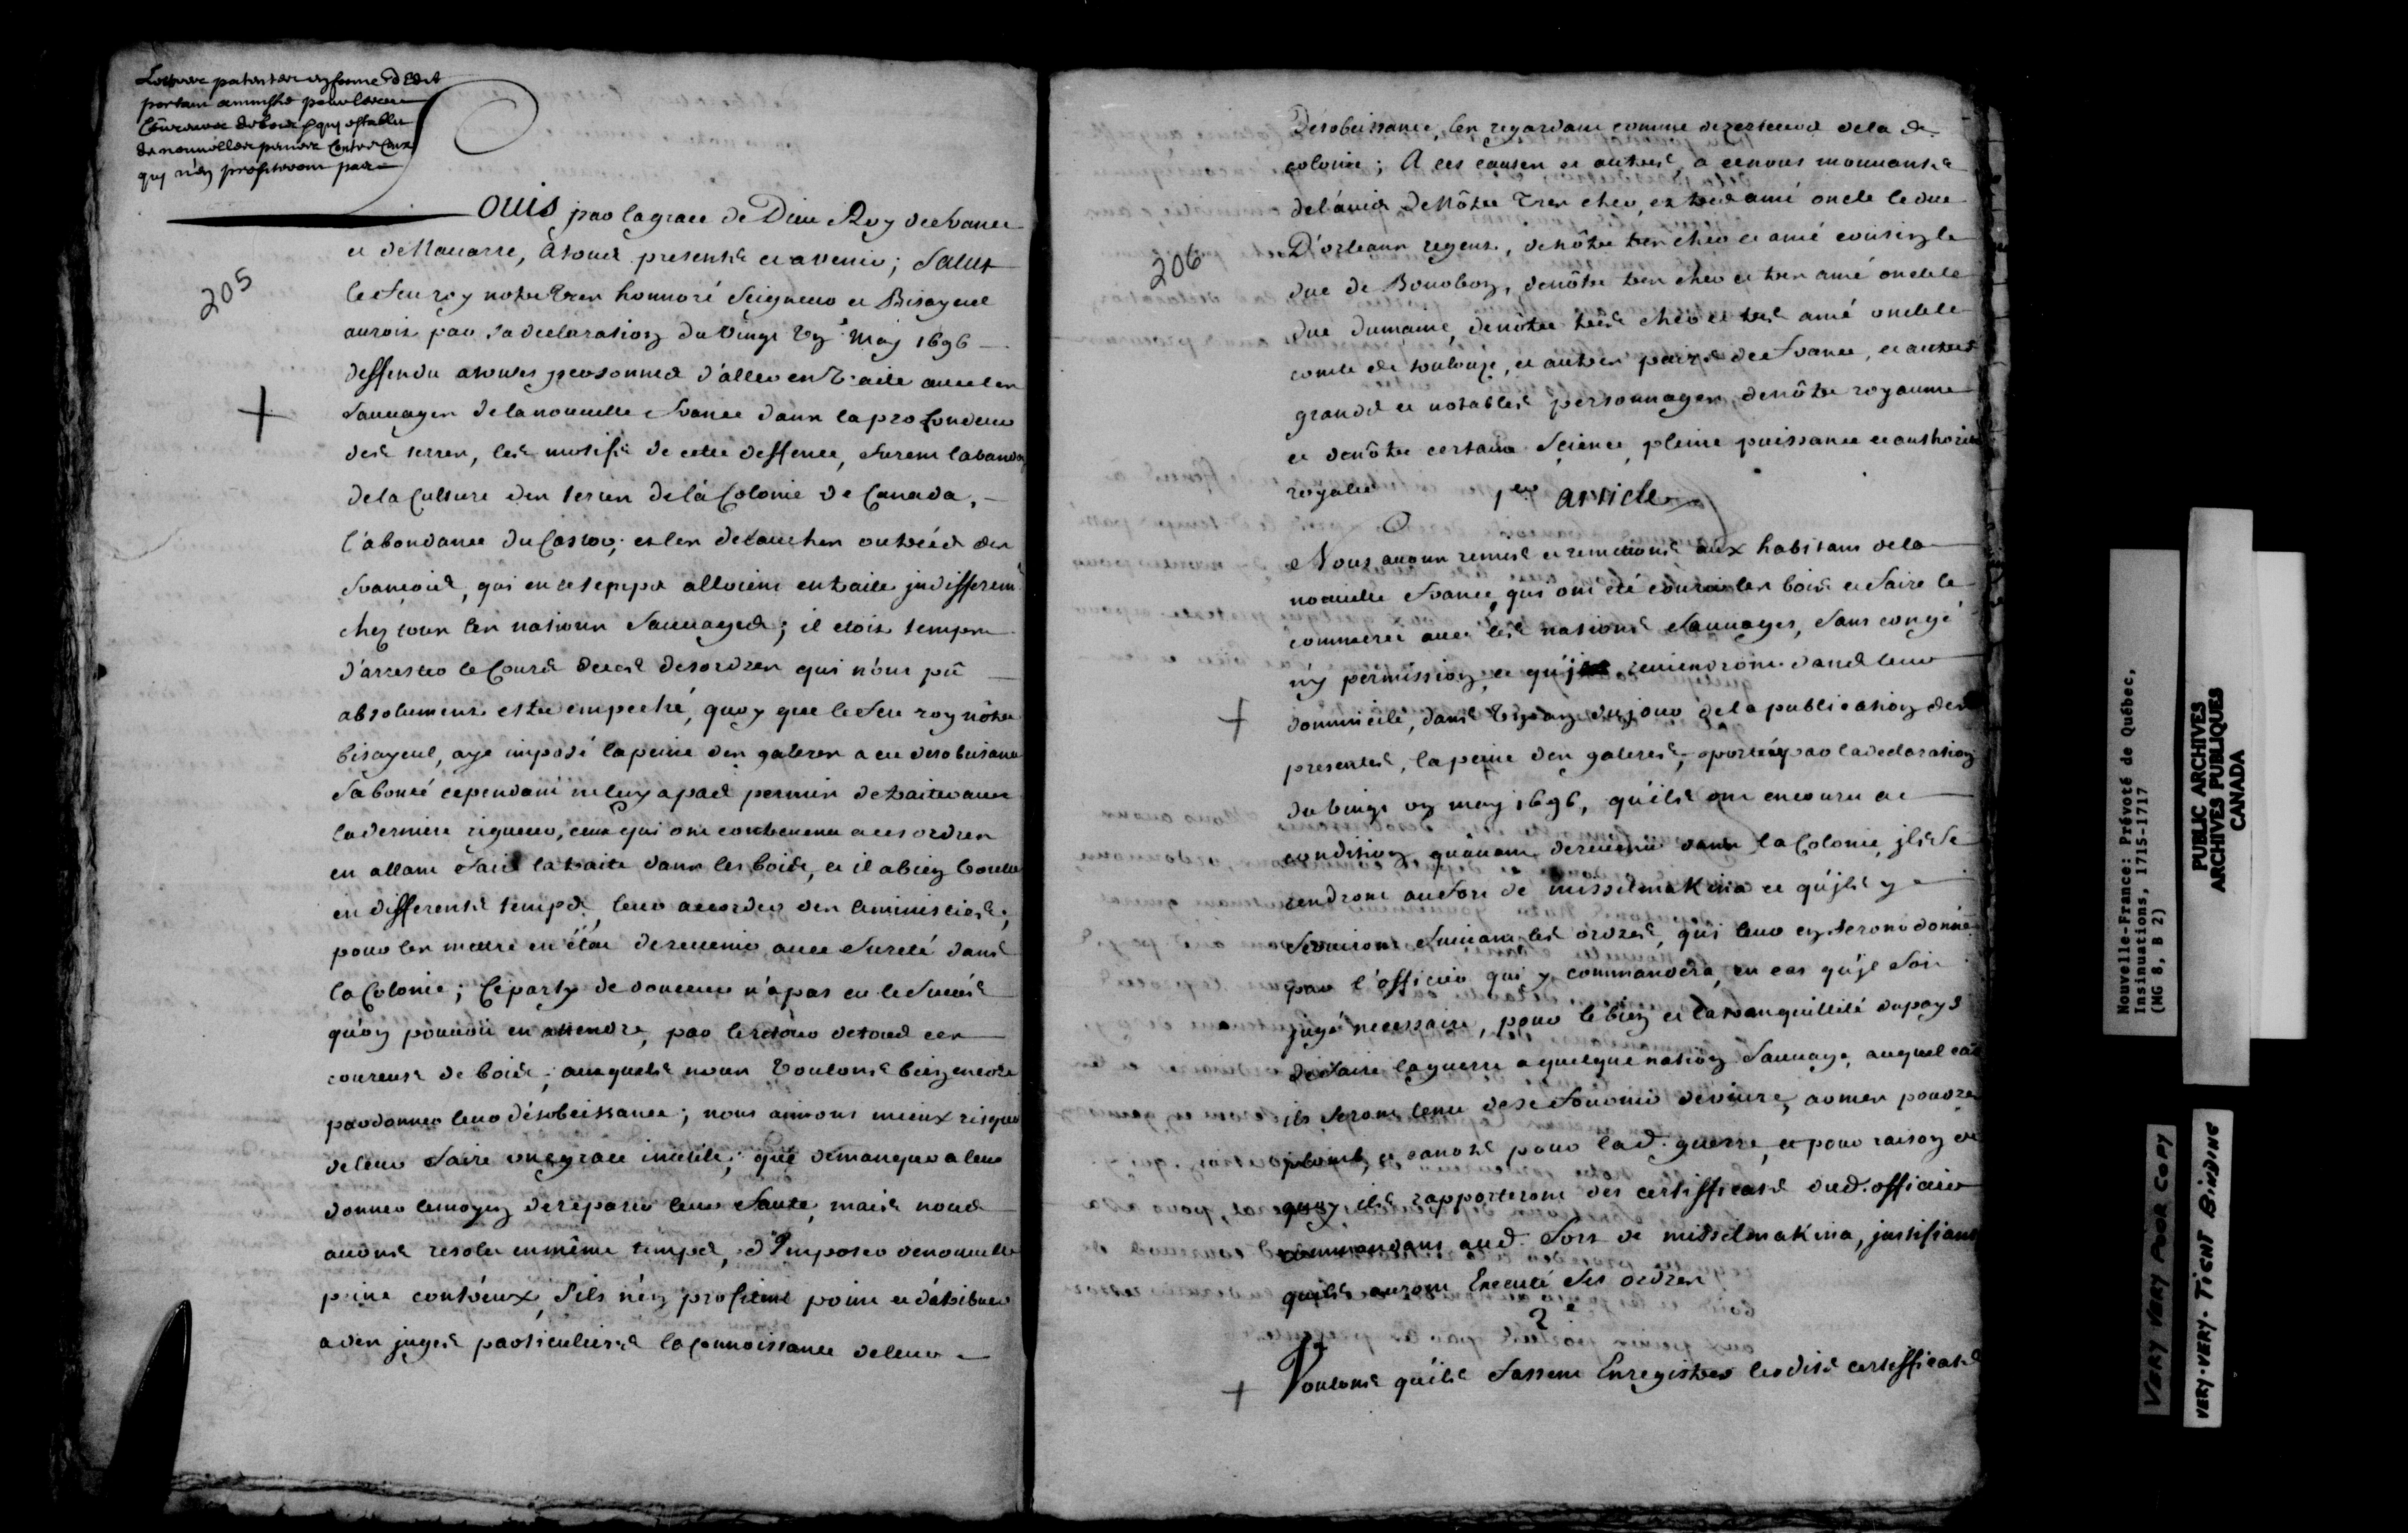 Lettres patentes en forme d'Edit
portant amnistie pour les
Coureurs de bois & qui establit
de nouvelles peines Contre Ceux
qui n'en profiteront pas
205
ouis par la grace de Dieu Roy de france
et de Navarre, à tous presents et avenir; Salut
le feu roy notre tres honnoré Seigneur et Bisayeul
auroit par sa declaration du vingt un May 1696
deffendu a toutes personnes d'aller en traite avec les
Sauvages de la nouvelle france dans la profondeur
des terres, les motifs de cette deffence, furent l'abandon
de la Culture des terres de la Colonie de Canada,
l'abondance du Castor, et les debauches outrées des
francois, qui en ce temps alloient en traite indifferem.
chez tous les nations Sauvages; il etoit temps
d'arrester le Cours de ces desordres qui n'ont pû
absolument estre empeché, quoy que le feu roy nôtre
bisayeul, aye imposé la peine des galeres a ces desobeissans
sa bonté cependant ne luy a pas permis de traiter avec
la derniere rigueur, ceux qui ont contrevenu a ces ordres
en allant faire la traite dans les bois, et il a bien voulu
en differents temps, leur accorder des amnisties,
pour les mettre en état de revenir avec sureté dans
la Colonie; Ce party de douceur n'a pas eu le succés
qu'on pouvoit en attendre, par le retour de tous ces
coureurs de bois, ausquels nous voulons bien encore
pardonner leur désobeissance; nous aimons mieux risquer
de leur faire une grace inutile, que de manquer a leur
donner le moyen de reparer leur faute, mais nous
avons resolu en même temps, d'Imposer de nouvelle
peine contr'eux, s'ils n'en profitent point et d'attribuer
a des juges particuliers la Connoissance de leur
206
Desobeissance, les regardant comme dezerteurs de la de
colonie; A ces causes et autres, a ce nous mouvants
de l'avis de Nôtre tres cher, et tres amé oncle le duc
D'orleans regent, de nôtre tres cher et amé cousin le
duc de Bourbon, de nôtre tres cher et tres amé oncle le
duc dumaine, de nôtre tres cher et tres amé oncle le
comte de toulouze, et autres pairs de france, et autres
grands et notables personnages de nôtre royaume
et de nôtre certaine Science, pleine puissance et authorité
royalle
1er article
Nous avons remis et remettons aux habitans de la
nouvelle france, qui ont été courir les bois et faire le
commerce avec les nations Sauvages, sans congé
ny permission, et qui reviendront dans leur
domicile, dans un an du jour de la publication des
presentes, la peine des galeres, portée par la declaration
du vingt un may 1696, qu'ils ont encouru a
condition qu'avant de revenir dans la Colonie, ils se
rendront au fort de missilmakina et qu'ils y
serviront suivant les ordres, qui leur en seront donné
par l'officier qui y commandera, en cas qu'il soit
jugé necessaire, pour le bien et la tranquillité du pays
de faire la guerre a quelque nation Sauvage, auquel cas
ils seront tenu de se fournir de vivre, armes poudre
plomb, et canots pour lad. guerre, et pour raison de
quoy ils rapporteront des certifficats dud. officier
commandant aud. fort de missilmakina, justifiant
qu'ils auront Executé ses ordres
2e
Voulons qu'ils fassent Enregistrer lesdits certifficats
Nouvelle-France: Prévoté de Québec,
Insinuations, 1715-1717
(MG 8, B 2)
PUBLIC ARCHIVES
ARCHIVES PUBLIQUES
CANADA
VERY VERY POOR COPY
VERY·VERY·TIGHT BINDING